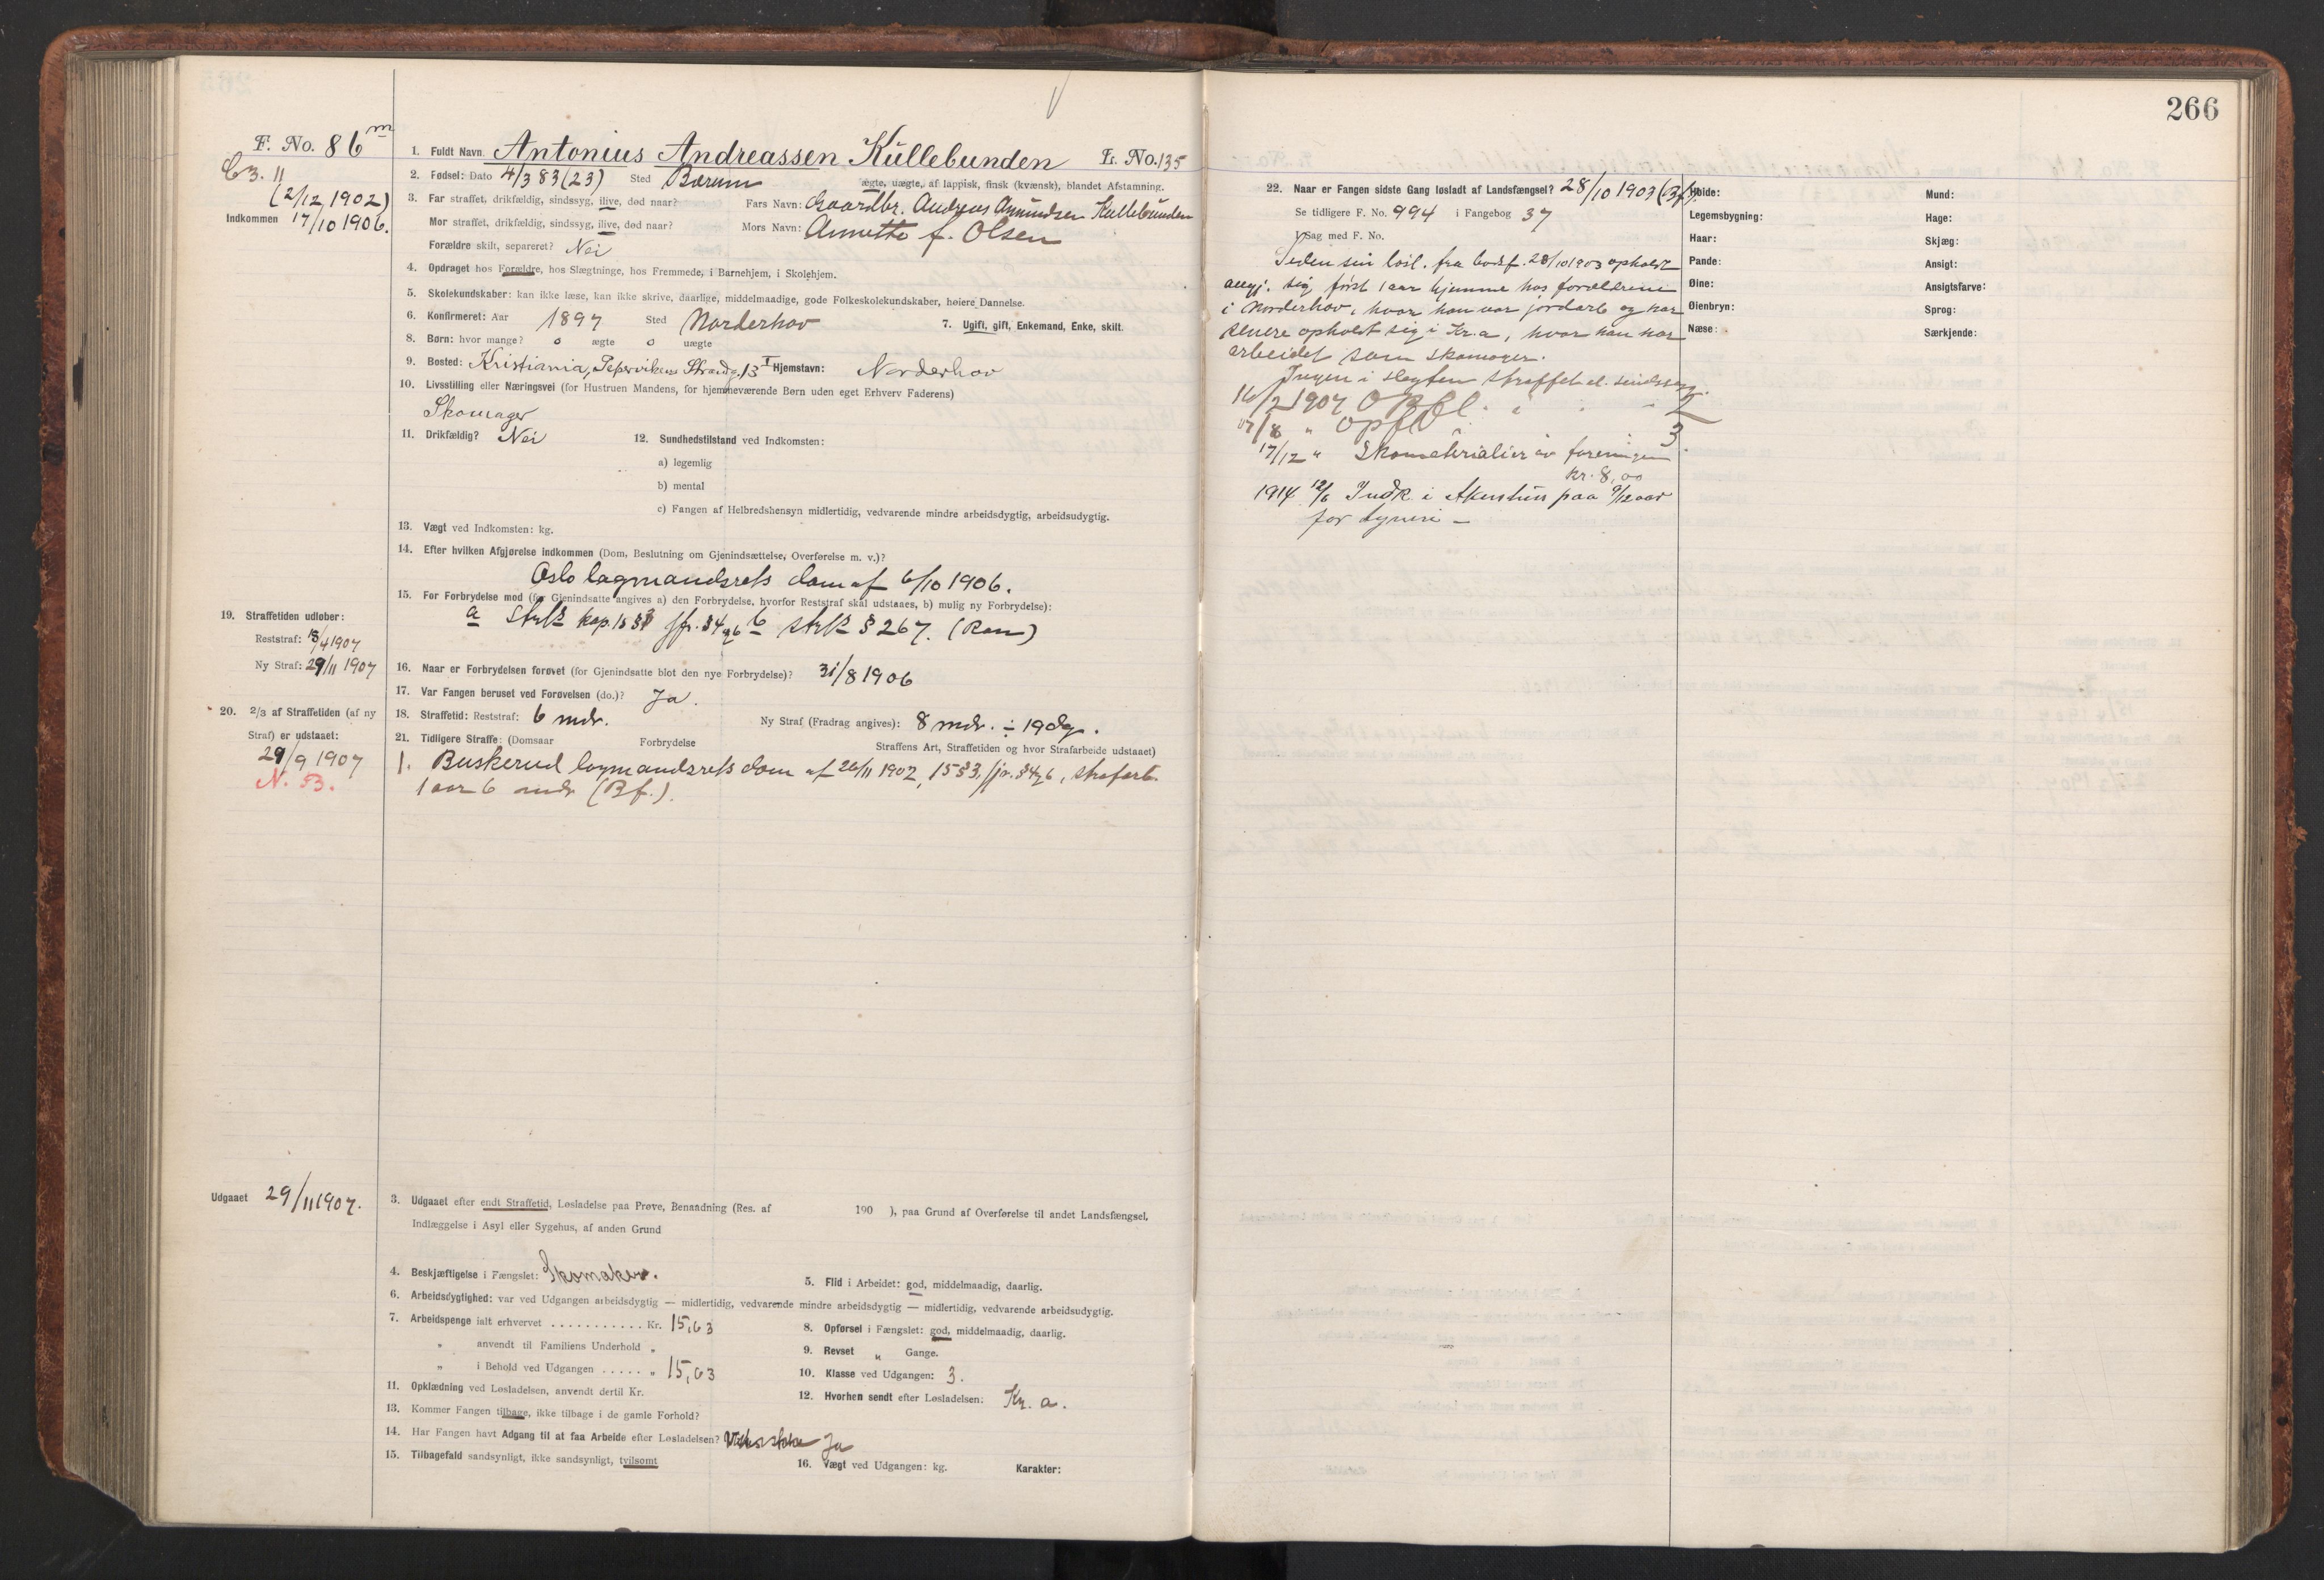 266
F. No. 86 m
C3. 11
(2/12 1902)
Indkommen 17/10 1906.
1. Fuldt Navn Antonius Andreassen Kullebunden Fr. No. 135
2. Fødsel: Dato 4/3 83 (23) Sted Bærum ægte, uægte, af lappisk, finsk (kvænsk), blandet Afstamning.
3. Far straffet, drikfældig, sindssyg, ilive, død naar? Fars Navn: Gaardbr. Andreas Amundsen Kullebunden
Mor straffet, drikfældig, sindssyg, ilive, død naar? Mors Navn: Annette f. Olsen
Forældre skilt, separeret? Nei
4. Opdraget hos Forældre, hos Slægtninge, hos Fremmede, i Barnehjem, i Skolehjem.
5. Skolekundskaber: kan ikke læse, kan ikke skrive, daarlige, middelmaadige, gode Folkeskolekundskaber, høiere Dannelse.
6. Konfirmeret: Aar 1897 Sted Norderhov 7. Ugift, gift, Enkemand, Enke, skilt.
8. Børn: hvor mange? 0 ægte 0 uægte
9. Bosted: Kristiania, Pepervikens Strandg. 13 I Hjemstavn: Norderhov
10. Livsstilling eller Næringsvei (for Hustruen Mandens, for hjemmeværende Børn uden eget Erhverv Faderens)
Skomager
11. Drikfældig? Nei 12. Sundhedstilstand ved Indkomsten:
a) legemlig
b) mental
c) Fangen af Helbredshensyn midlertidig, vedvarende mindre arbeidsdygtig, arbeidsudygtig.
13. Vægt ved Indkomsten: kg.
14. Efter hvilken Afgjørelse indkommen (Dom, Beslutning om Gjenindsættelse, Overførelse m. v.)?
Oslo lagmandsrets dom af 6/10 1906.
15. For Forbrydelse mod (for Gjenindsatte angives a) den Forbrydelse, hvorfor Reststraf skal udstaaes, b) mulig ny Forbrydelse):
a strl kap. 15 § 3 jfr. § 4 b strl § 267. (Ran)
19. Straffetiden udløber:
Reststraf: 18/4 1907
Ny Straf: 29/11 1907
16. Naar er Forbrydelsen forøvet (for Gjenindsatte blot den nye Forbrydelse)? 31/8 1906
17. Var Fangen beruset ved Forøvelsen (do.)? Ja.
18. Straffetid: Reststraf: 6 mdr. Ny Straf (Fradrag angives): 8 mdr. ÷ 19 dg.
20. 2/3 af Straffetiden (af ny Straf) er udstaaet:
29/9 1907
N. B.
21. Tidligere Straffe: (Domsaar Forbrydelse Straffens Art, Straffetiden og hvor Strafarbeide udstaaet)
1. Buskerud lagmandsrets dom af 26/11 1902, 15 § 3, jfr. § 4, strafarb.
1 aar 6 mdr (Bf.).
Udgaaet 29/11 1907.
3. Udgaaet efter endt Straffetid, Løsladelse paa Prøve, Benaadning (Res. af 190 ), paa Grund af Overførelse til andet Landsfængsel,
Indlæggelse i Asyl eller Sygehus, af anden Grund
4. Beskjæftigelse i Fængslet: Skomaker. 5. Flid i Arbeidet: god, middelmaadig, daarlig.
6. Arbeidsdygtighed: var ved Udgangen arbeidsdygtig — midlertidig, vedvarende mindre arbeidsdygtig — midlertidig, vedvarende arbeidsudygtig.
7. Arbeidspenge ialt erhvervet . . . . . . . . . . . Kr. 15,63 8. Opførsel i Fængslet: god, middelmaadig, daarlig.
„ anvendt til Familiens Underhold „ 9. Revset „ Gange.
„ i Behold ved Udgangen . . . . . „ 15,63 10. Klasse ved Udgangen: 3.
11. Opklædning ved Løsladelsen, anvendt dertil Kr. 12. Hvorhen sendt efter Løsladelsen: Kr. a.
13. Kommer Fangen tilbage, ikke tilbage i de gamle Forhold?
14. Har Fangen havt Adgang til at faa Arbeide efter Løsladelsen? Ja
15. Tilbagefald sandsynligt, ikke sandsynligt, tvilsomt 16. Vægt ved Udgangen: kg. Karakter:
22. Naar er Fangen sidste Gang løsladt af Landsfængsel? 28/10 1903 (Bf).
Se tidligere F. No. 994 i Fangebog 37
I Sag med F. No.
Siden sin løsl. fra bodsf. 28/10 1903 opholdt
angj. sig først 1 aar hjemme hos forældrene
i Norderhov, hvor han var jordarb og har
senere opholdt sig i Kr.a, hvor han har
arbeidet som skomager.
Ingen i slegten straffet el. sindssyg.
16/2 1907 Opfl. i 2
17/8 „ opfl i 3
17/12 „ Skomaterialier av foreningen
kr. 8,00
1914 12/6 Indk. i Akershus paa 9/12 aar
for tyveri –
Høide: Mund:
Legemsbygning: Hage:
Haar: Skjæg:
Pande: Ansigt:
Øine: Ansigtsfarve:
Øienbryn: Sprog:
Næse: Særkjende: